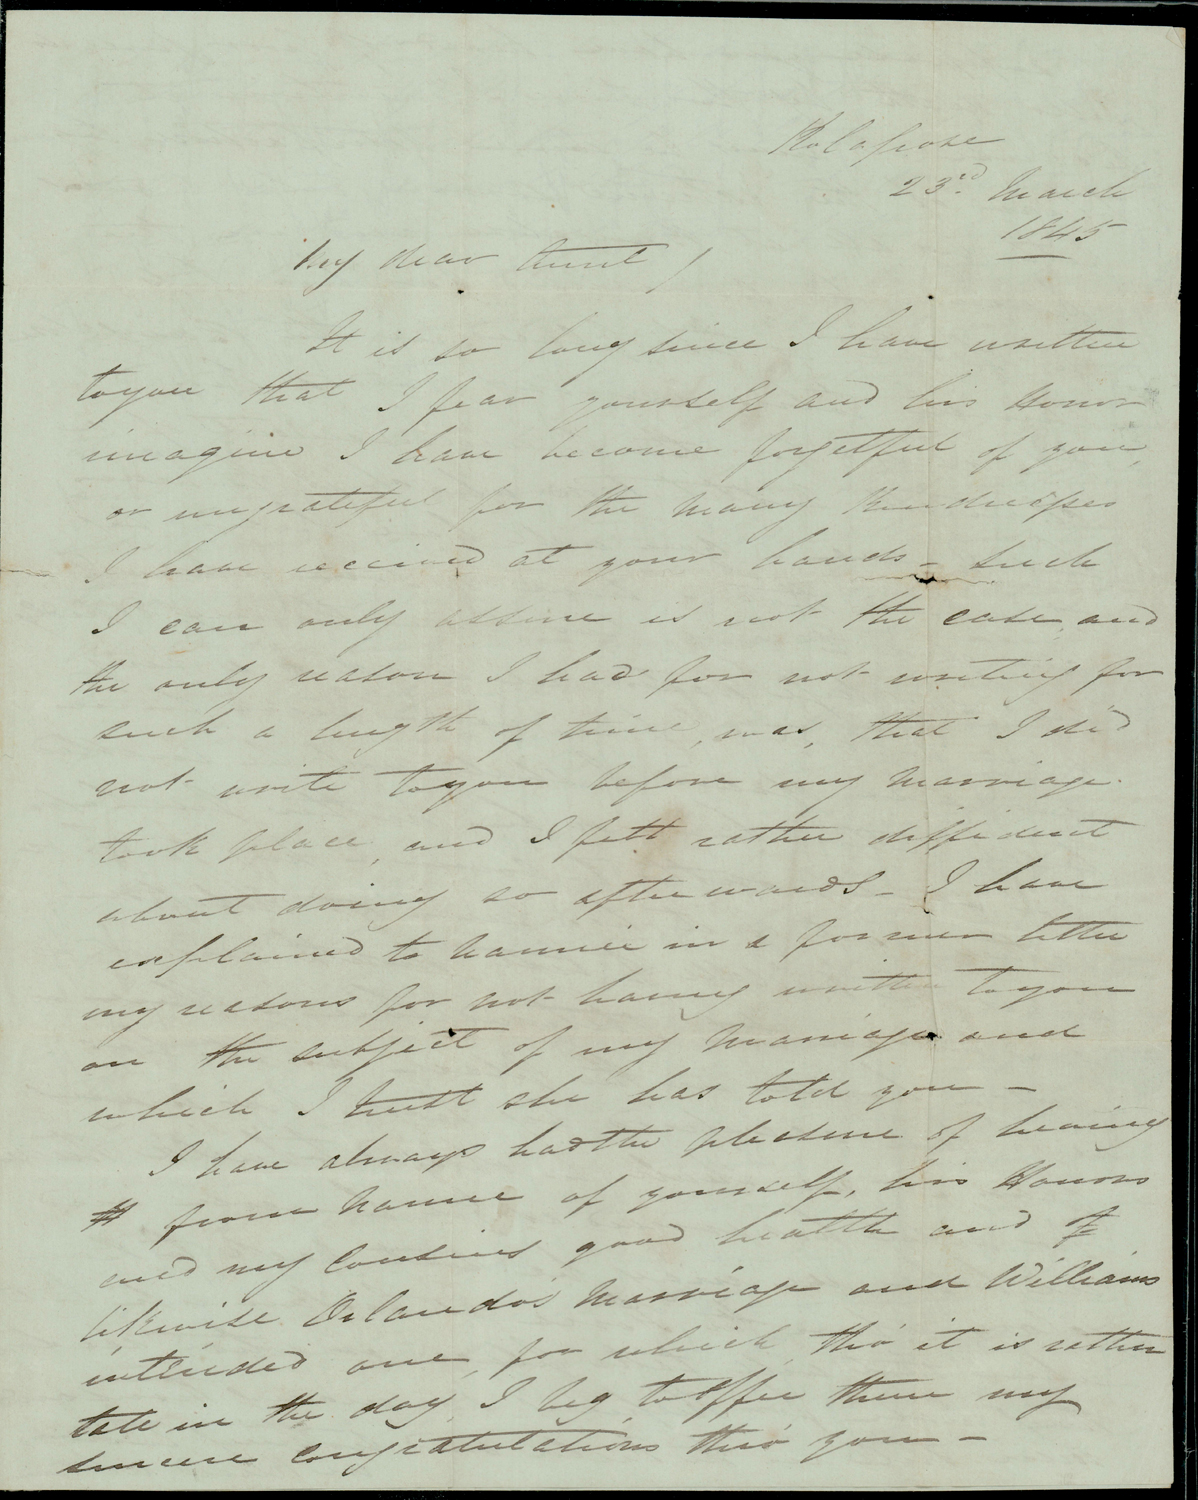 Kolapore
23rd. March
1845
My dear Aunt,
It is so long since I have written
to you that I fear yourself and his Honor
imagine I have become forgetful of you,
or ungrateful for the many kindnesses
I have received at your hands - Such
I can only assure is not the case, and
the only reason I had for not writing for
such a length of time, was, that I did
not write to you before my marriage
took place, and I felt rather diffident
about doing so afterwards - I have
explained to Nannie in a former letter
my reasons for not having written to you
on the subject of my marriage and
which I trust she has told you -
I have always had the pleasure of hearing
from Nannie of yourself, his Honors
and my Cousins good health and of
likewise Orlando's marriage and Williams
intended one, for which, tho' it is rather
late in the day, I beg to offer them my
sincere congratulations thro' you -